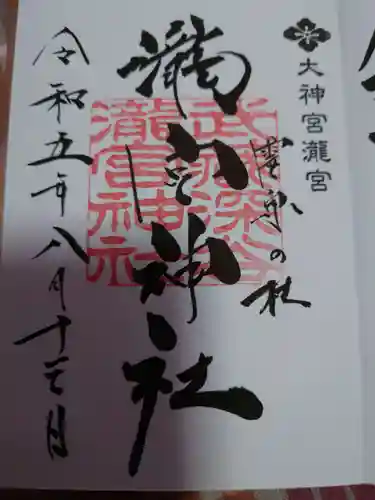 大神宮瀧宮
の杜
瀧宮神社
武藏深谷
瀧宮神社
令和五年八月十三日